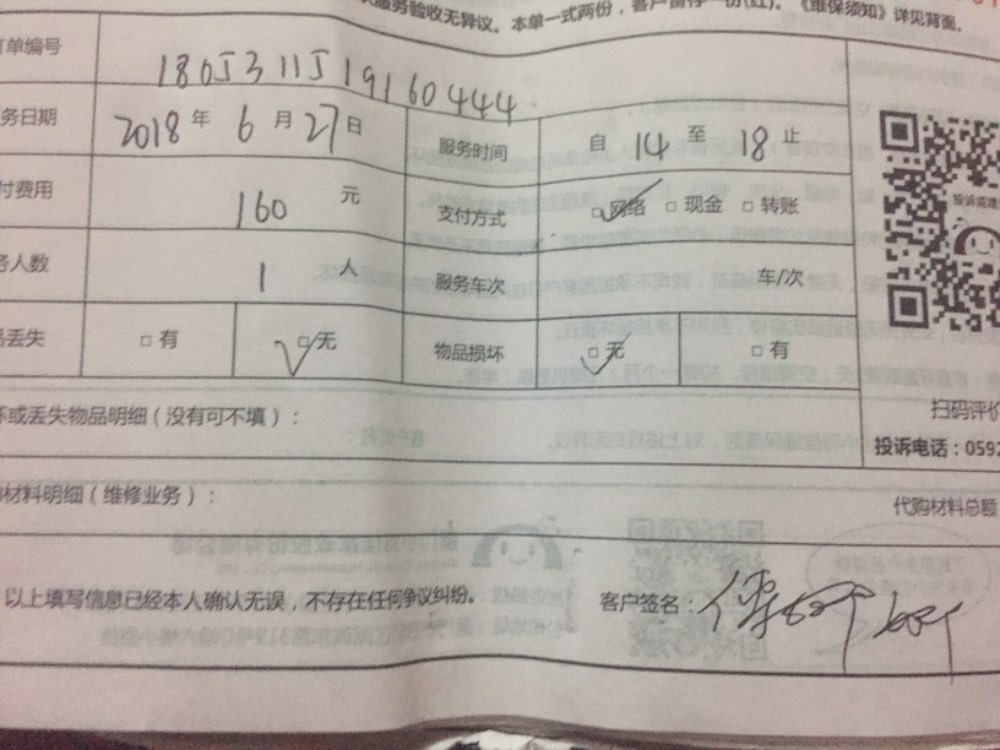 服务验收无异议。本单一式两份，客户留存一份(红)。《维保须知》详见背面。
订单编号 1805311519160444
务日期 2018年6月27日 服务时间 自14至18止
付费用 160元 支付方式 网络 现金 转账
务人数 1人 服务车次 车/次
品丢失 有 无 物品损坏 无 有
坏或丢失物品明细（没有可不填）：
扫码评价
投诉电话：0592
材料明细（维修业务）：
代购材料总额
以上填写信息已经本人确认无误，不存在任何争议纠纷。 客户签名：